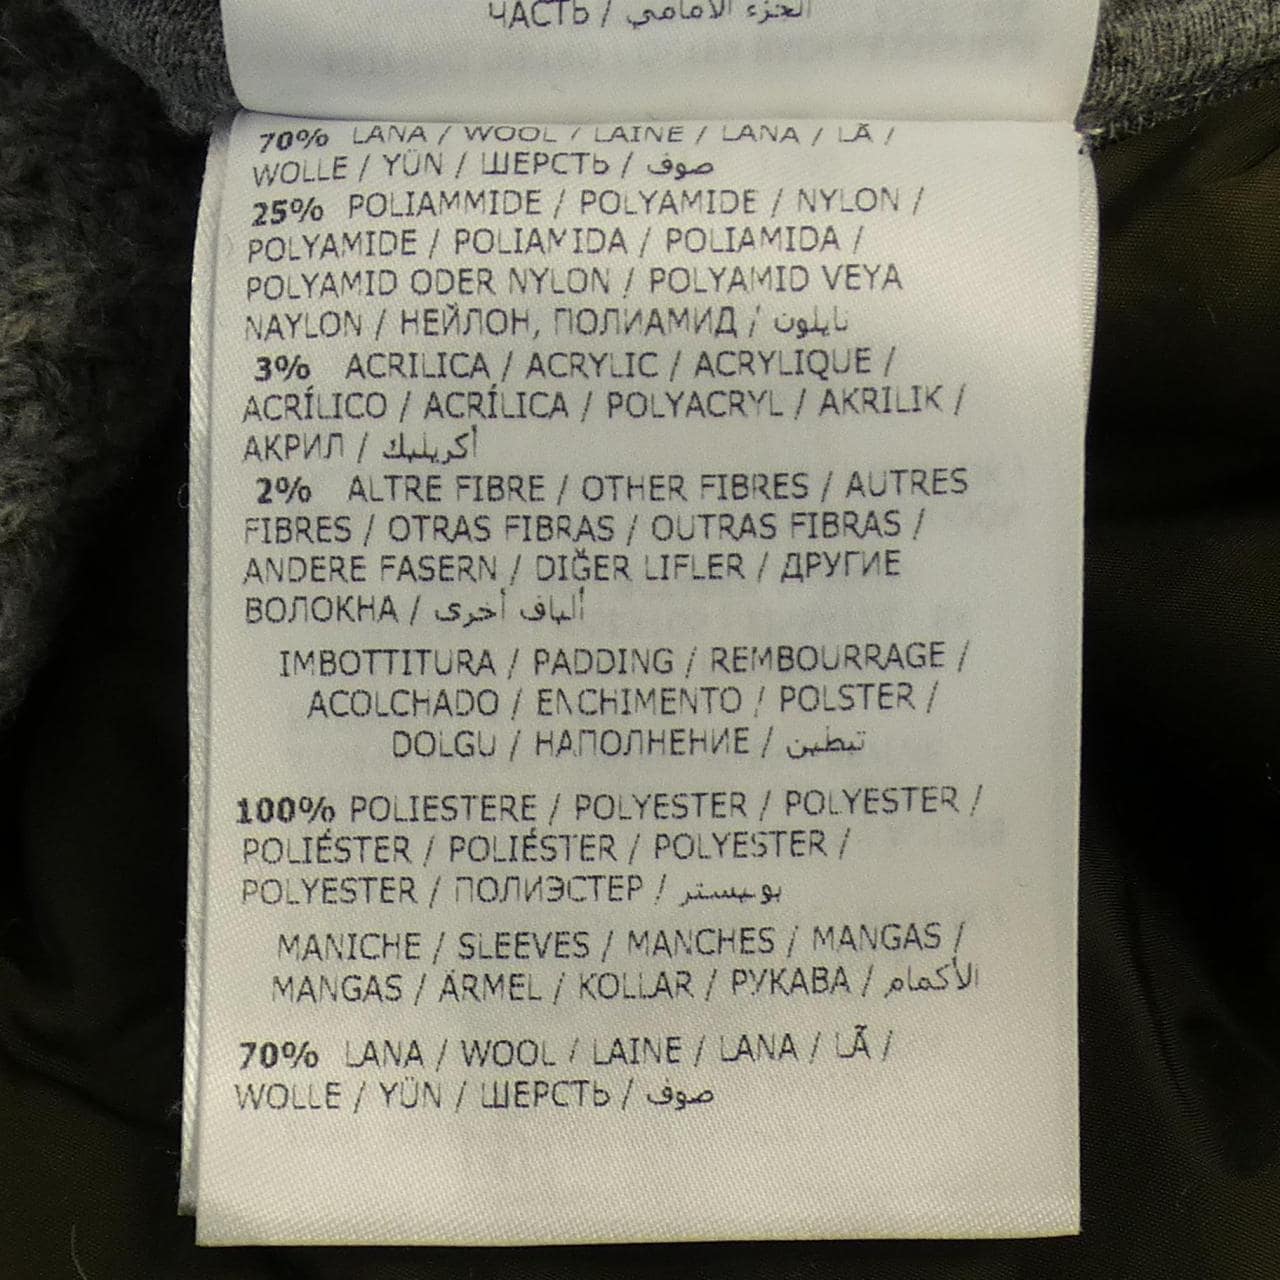 ЧАСТЬ / الجزء الأمامي
70% LANA / WOOL / LAINE / LANA / LÃ /
WOLLE / YÜN / ШЕРСТЬ / صوف
25% POLIAMMIDE / POLYAMIDE / NYLON /
POLYAMIDE / POLIAMIDA / POLIAMIDA /
POLYAMID ODER NYLON / POLYAMID VEYA
NAYLON / НЕЙЛОН, ПОЛИАМИД / نايلون
3% ACRILICA / ACRYLIC / ACRYLIQUE /
ACRÍLICO / ACRÍLICA / POLYACRYL / AKRILIK /
АКРИЛ / أكريليك
2% ALTRE FIBRE / OTHER FIBRES / AUTRES
FIBRES / OTRAS FIBRAS / OUTRAS FIBRAS /
ANDERE FASERN / DIĞER LIFLER / ДРУГИЕ
ВОЛОКНА / ألياف أخرى
IMBOTTITURA / PADDING / REMBOURRAGE /
ACOLCHADO / ENCHIMENTO / POLSTER /
DOLGU / НАПОЛНЕНИЕ / تبطين
100% POLIESTERE / POLYESTER / POLYESTER /
POLIÉSTER / POLIÉSTER / POLYESTER /
POLYESTER / ПОЛИЭСТЕР / بوليستر
MANICHE / SLEEVES / MANCHES / MANGAS /
MANGAS / ÄRMEL / KOLLAR / РУКАВА / الأكمام
70% LANA / WOOL / LAINE / LANA / LÃ /
WOLLE / YÜN / ШЕРСТЬ / صوف